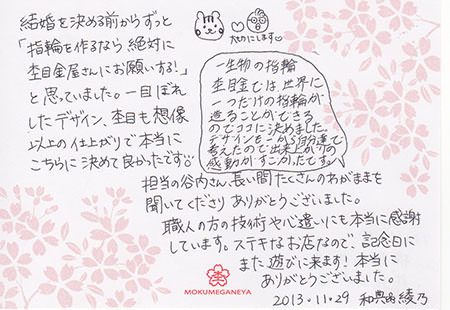 結婚を決める前からずっと
「指輪を作るなら絶対に
杢目金屋さんにお願いする!」
と思っていました。一目ぼれ
したデザイン、杢目も想像
以上の仕上がりで本当に
こちらに決めて良かったです
大切にします
一生物の指輪
杢目金では、世界に
一つだけの指輪が
造ることができる
のでココに決めました
デザインを一から自分達で
考えたので出来上がりの
感動がすごかったです。
担当の谷内さん、長い間たくさんのわがままを
聞いてくださりありがとうございました。
職人の方の技術や心遣いにも本当に感謝
しています。ステキなお店なので、記念日に
また遊びに来ます!本当に
ありがとうございました。
MOKUMEGANEYA
2013.11.29 和典 綾乃